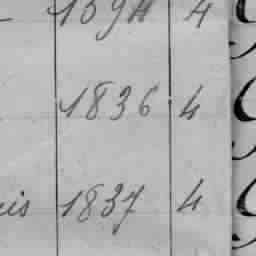 1894 4
1836 4
is 1837 4